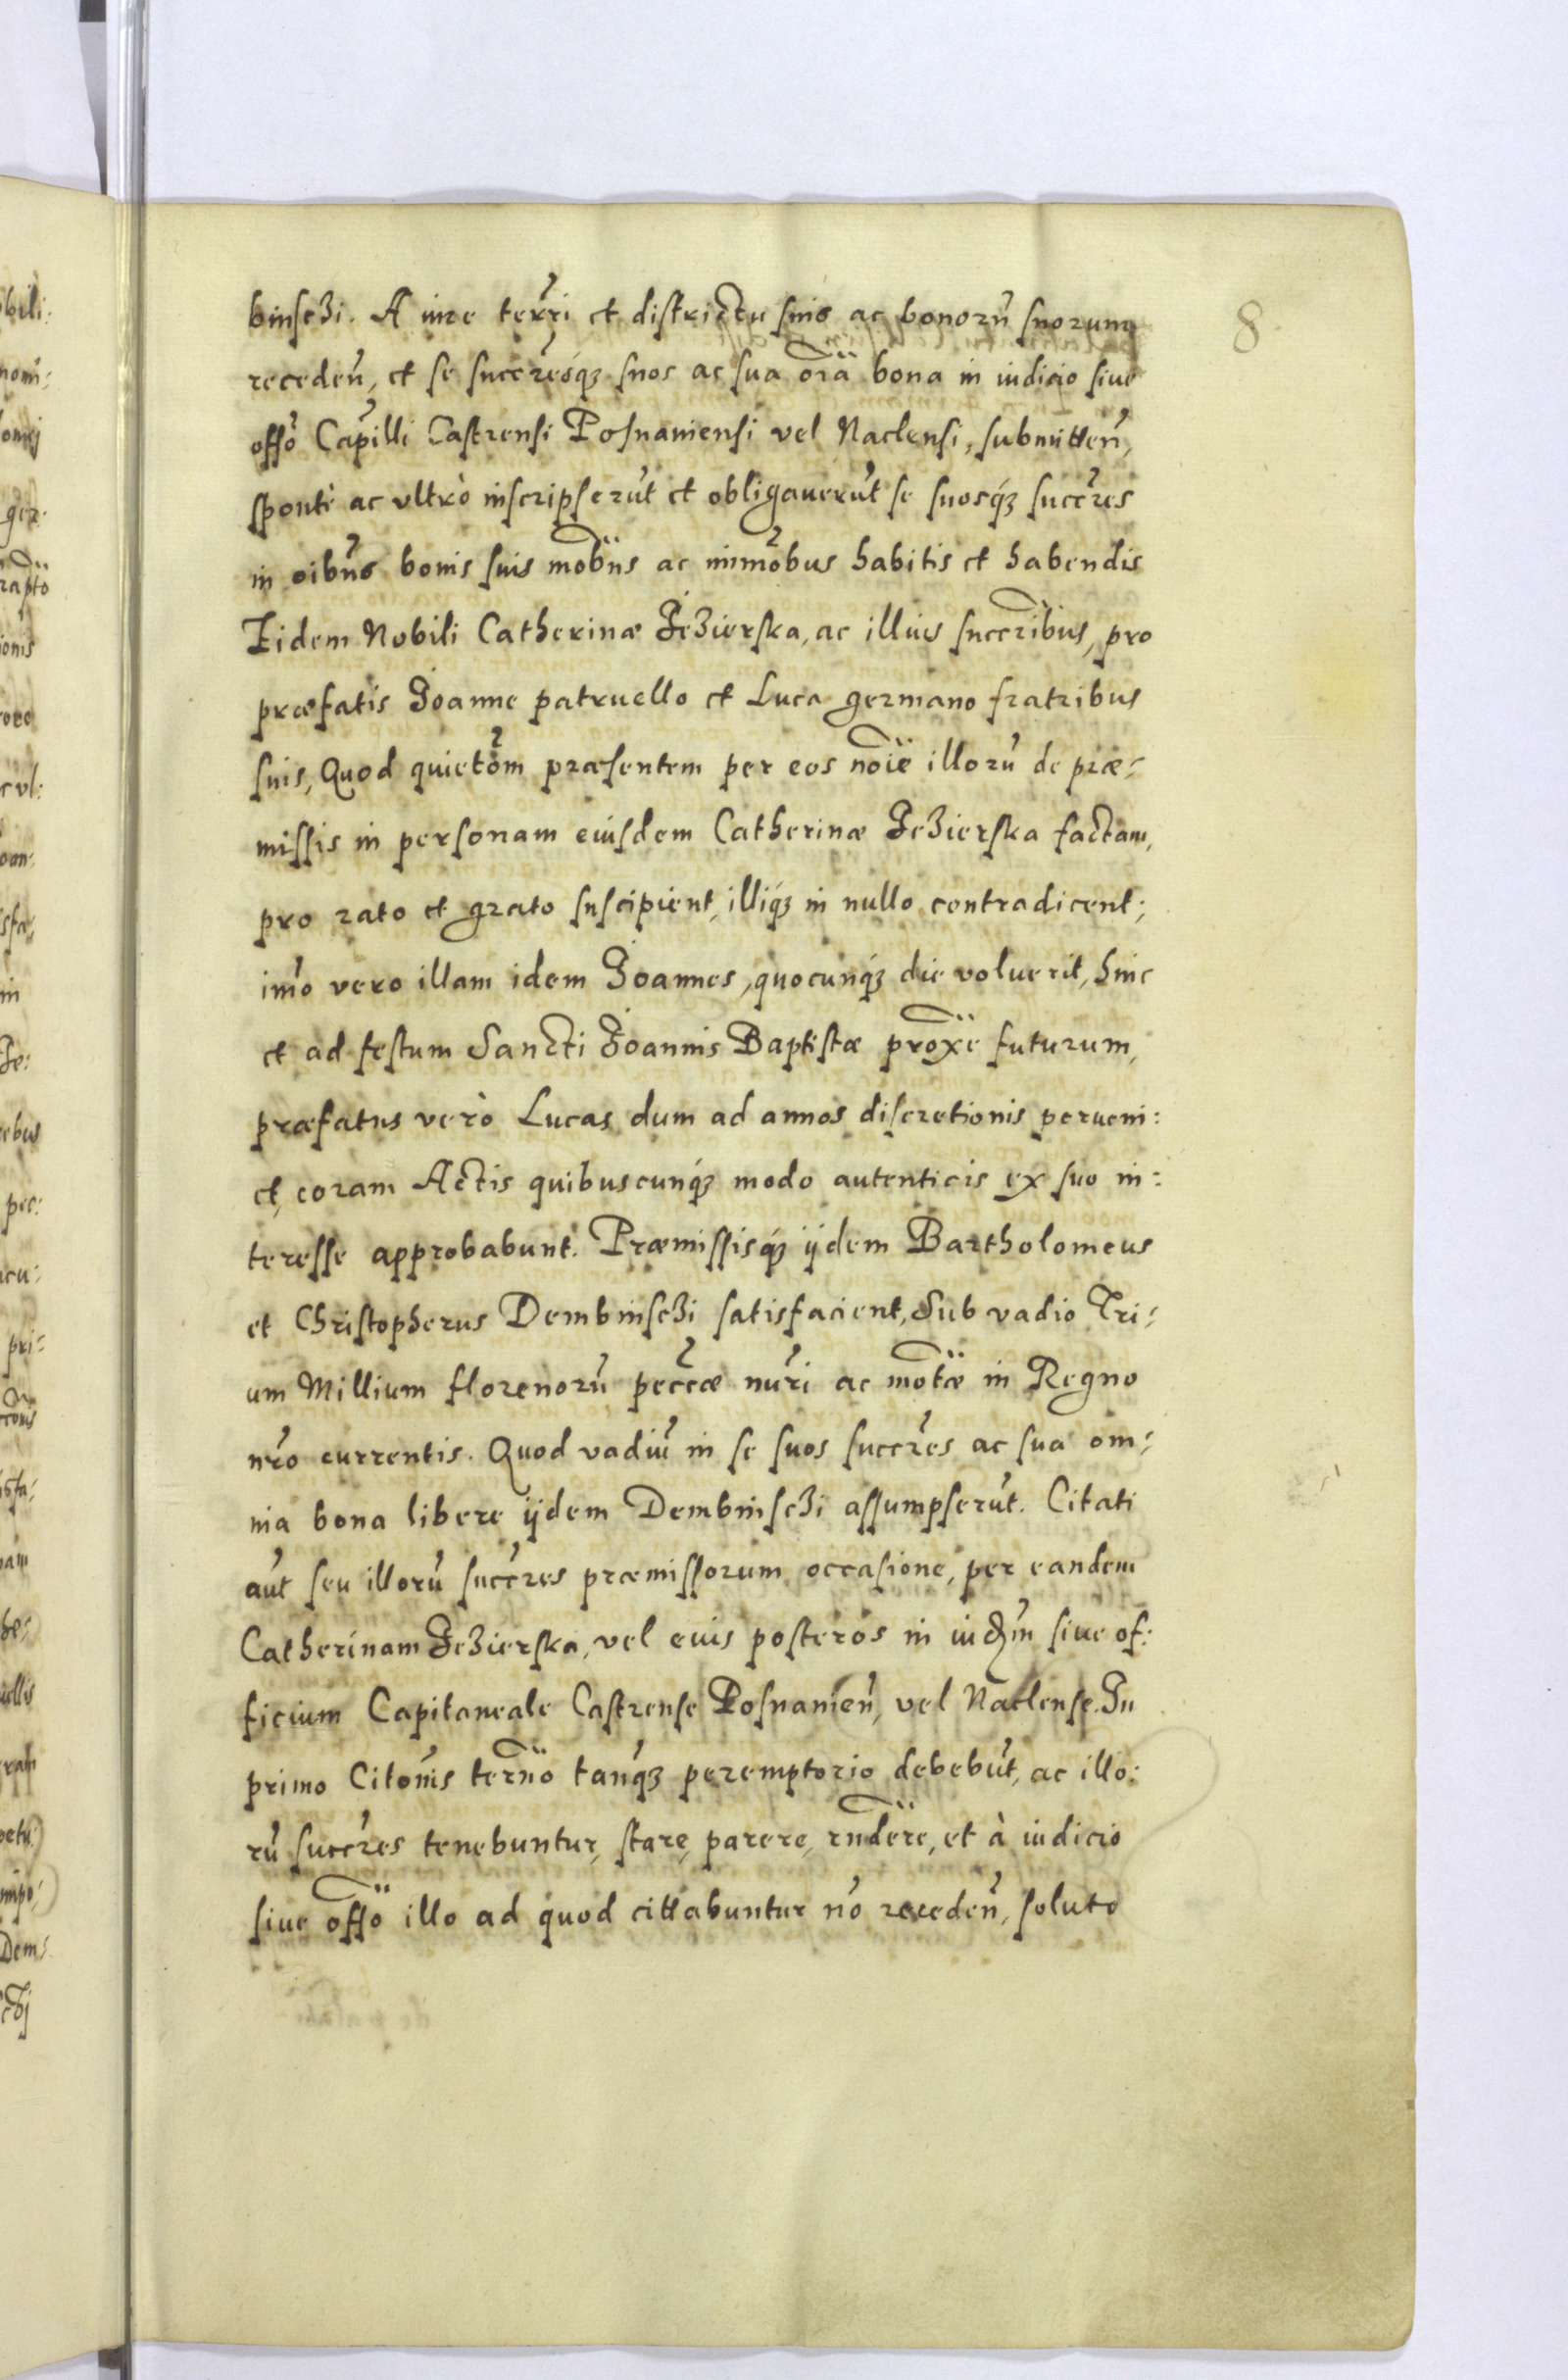 8
binschi. A iure terrĩ et districtu suis ac bonorũ suorum
receden̄, et se succr̃esq́ꝫ suos ac sua oĩa bona in iudicio siue
offō Capĩlli Castrensi Posnaniensi vel Naclensi, submitten̄,
spontè ac vltrò inscripserũt et obligauerũt se suosq́ꝫ succr̃es
in oibũs bonis suis mobñs ac immõbus habitis et habendis
Eidem Nobili Catherinæ Jezierska, ac illius succr̃ibus, pro
præfatis Joanne patruello et Luca germano fratribus
suis, Quod quietõm præsentem per eos noĩe illorũ de præ-
missis in personam eiusdem Catherinæ Jezierska factam,
pro rato et grato suscipient, illiq́ꝫ in nullo contradicent;
im̃o vero illam idem Joannes, quocunq́ꝫ die voluerit, hinc
et ad festum Sancti Joannis Baptistæ prox̃e futurum,
præfatus verò Lucas dum ad annos discretionis perueni:
et, coram Actis quibuscunq́ꝫ modo autenticis ex suo in:
teresse approbabunt. Præmissisq́ꝫ ijdem Bartholomeus
et Christopherus Dembinschi satisfacient, Sub vadio Tri-
um Millium florenorũ pecc̃æ nur̃i ac mot̃æ in Regno
nr̃o currentis. Quod vadiũ in se suos succr̃es ac sua om-
nia bona libere ijdem Dembinschi assumpserũt. Citati
aũt seu illorũ succr̃es præmissorum occasione, per eandem
Catherinam Jezierska, vel eius posteros in iudm̃ siue of:
ficium Capitaneale Castrense Posnanien̄, vel Naclense. In
primo Citoñis termño tanq́ꝫ peremptorio debebũt, ac illo:
rũ succr̃es tenebuntur, stare, parere, rñdere, et à iudicio
siue offõ illo ad quod cittabuntur nõ receden̄, soluto